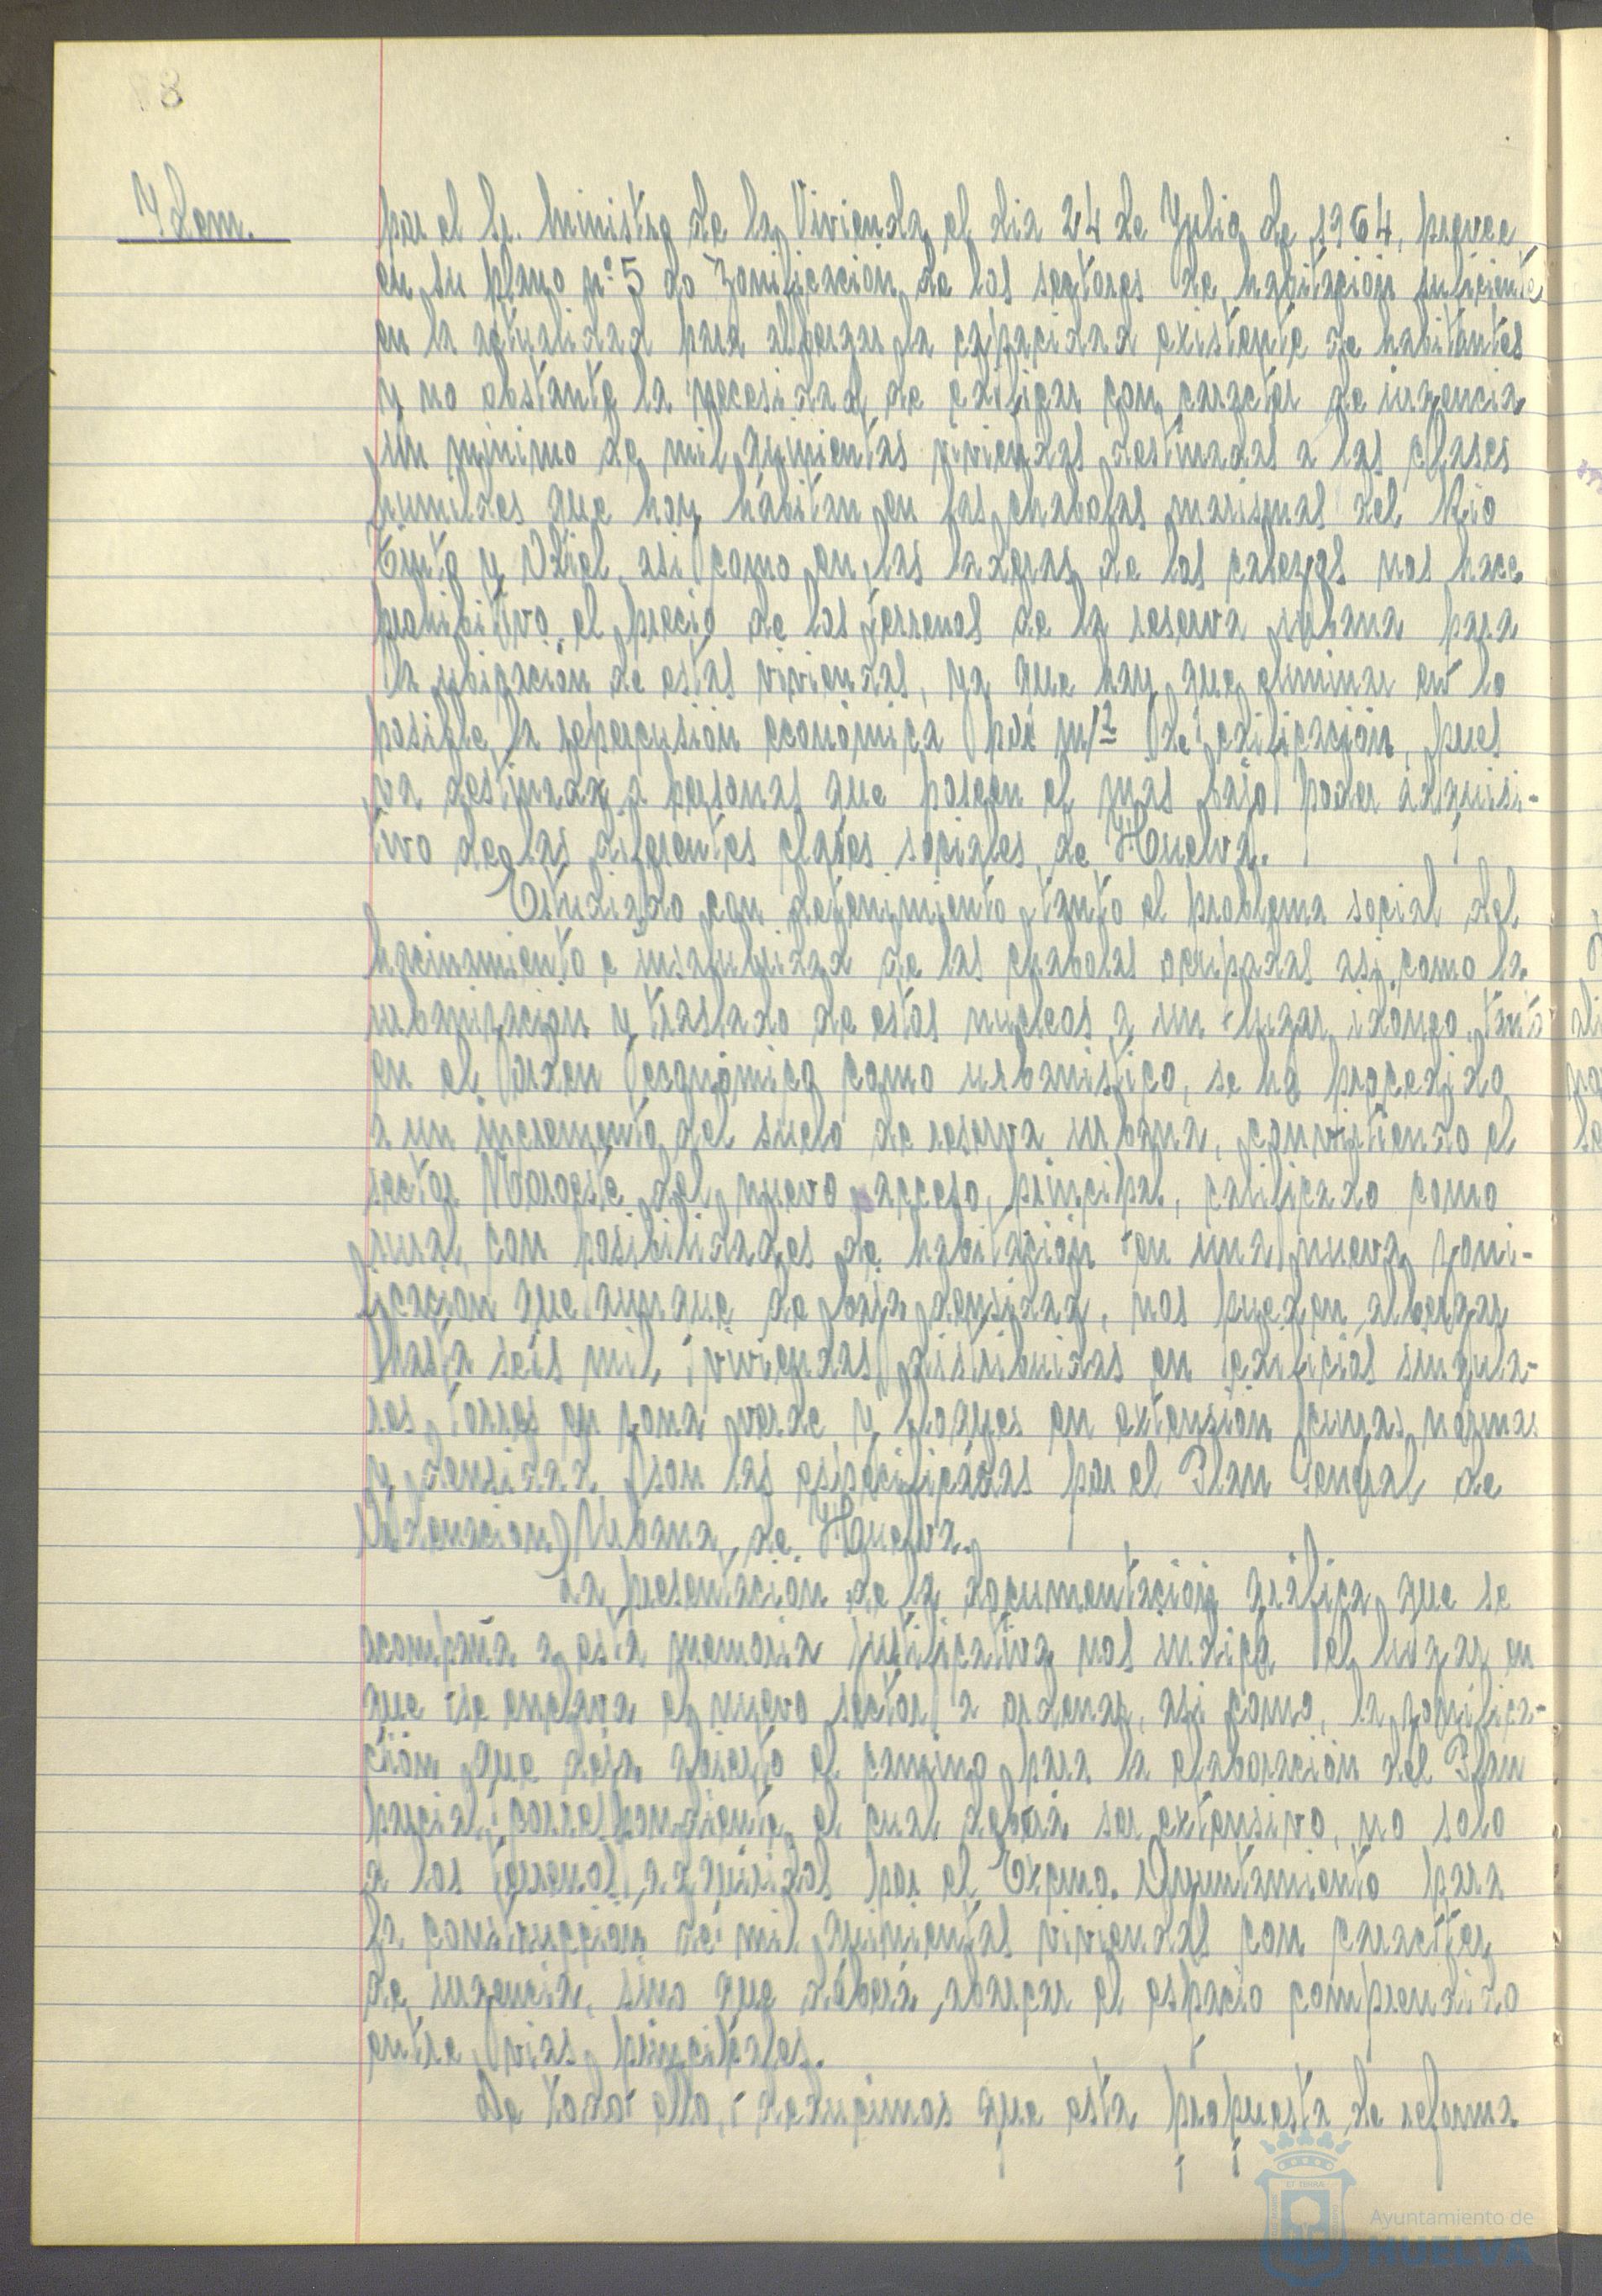 98
Ydem.
por el Sr. Ministro de la Vivienda, el dia 24 de Julio de 1964, provee
en su plano nº 5 de Zonificación de los sectores de habitación suficiente
en la actualidad para albergar la capacidad existente de habitantes
y no obstante la necesidad de edificar con caracter de urgencia
un minimo de mil quinientas viviendas destinadas a las clases
humildes que hoy habitan en las chabolas marismas del Rio
Tinto y Odiel, asi como en las laderas de los cabezos nos hace
prohibitivo el precio de los terrenos de la reserva urbana para
la ubicación de estas viviendas, ya que hay que eliminar en lo
posible, la repercusión económica por m/2 de edificación, pues
va destinada a personas que poseen el más bajo poder adquisi-
tivo de las diferentes clases sociales de Huelva.
Estudiado con detenimiento tanto el problema social del
hacinamiento e insalubridad de las chabolas ocupadas asi como la
urbanización y traslado de estos nucleos a un lugar idoneo, tanto
en el orden económico como urbanistico, se ha procedido
a un incremento del suelo de reserva urbana, convirtiendo el
sector Noroeste del nuevo acceso, principal, calificado como
rural, con posibilidades de habitación en una nueva zoni-
ficación que aunque de baja densidad, nos pueden albergar
hasta seis mil viviendas distribuidas en edificios singula-
res, torres en zona verde y bloques en extensión cuyas normas
y densidad son las especificadas por el Plan General de
Ordenación Urbana, de Huelva.
La presentación de la documentación gráfica que se
acompaña a esta memoria justificativa nos indica el lugar en
que se enclava el nuevo sector a ordenar, asi como, la zonifica-
ción que deja abierto el camino para la elaboración del Plan
parcial correspondiente, el cual deberá ser extensivo, no solo
a los terrenos adquiridos por el Excmo. Ayuntamiento para
la construcción de mil quinientas viviendas con caracter
de urgencia, sino que deberá abarcar el espacio comprendido
entre vias principales.
De todo ello, deducimos que esta propuesta de reforma
Ayuntamiento de
HUELVA